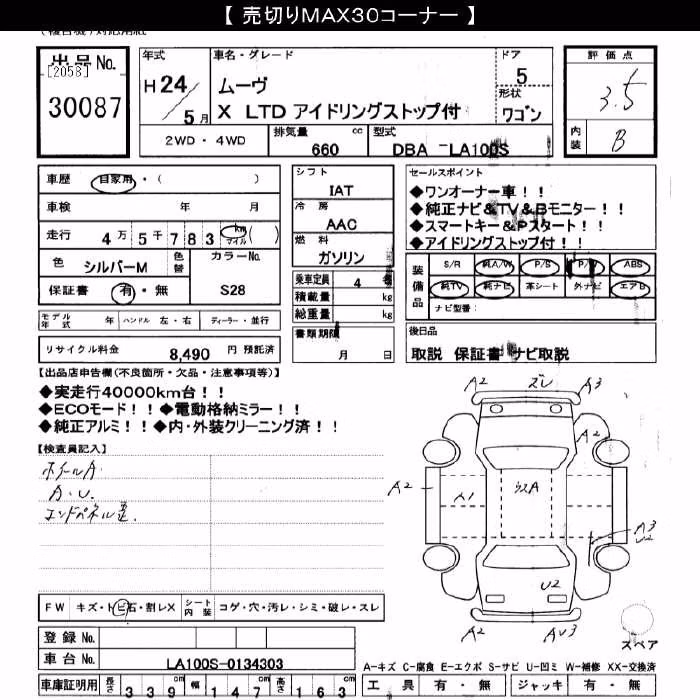 【 売切りMAX30コーナー 】
出品 No.
[2058]
30087
年式
H 24/5月
車名・グレード
ムーヴ
X LTD アイドリングストップ付
ドア
5
形状
ワゴン
評価点
3.5
内装
B
2WD・4WD
排気量
660 cc
型式
DBA -LA100S
車歴
自家用・( )
車検 年 月
走行 4万5千783 km マイル ( )
色
シルバーM
色替
カラーNo.
S28
保証書 有・無
シフト
IAT
冷房
AAC
燃料
ガソリン
乗車定員 4
積載量 kg
総重量 kg
書類期限
月 日
セールスポイント
◆ワンオーナー車!!
◆純正ナビ&TV&Bモニター!!
◆スマートキー&Pスタート!!
◆アイドリングストップ付!!
装備品
S/R 純A/W P/S P/W ABS
純TV 純ナビ 革シート 外ナビ エアB
ナビ型番:
後日品
取説 保証書 ナビ取説
モデル年式 年 ハンドル 左・右 ディーラー・並行
リサイクル料金 8,490 円 預託済
【出品店申告欄(不良箇所・欠品・注意事項等)】
◆実走行40000km台!!
◆ECOモード!!◆電動格納ミラー!!
◆純正アルミ!!◆内・外装クリーニング済!!
【検査員記入】
ホイールA
A・U.
エンドパネル歪.
A2 ズレ A3
A2
A2 A1 ガラスA
A3
U2
U2
A2 AU3
スペア
FW キズ・トビ石・割レX シート内装 コゲ・穴・汚レ・シミ・破レ・スレ
登録 No.
車台 No. LA100S-0134303
車庫証明用 長さ 339 cm 幅 147 cm 高さ 163 cm
A-キズ C-腐食 E-エクボ S-サビ U-凹ミ W-補修 XX-交換済
工具 有・無 ジャッキ 有・無